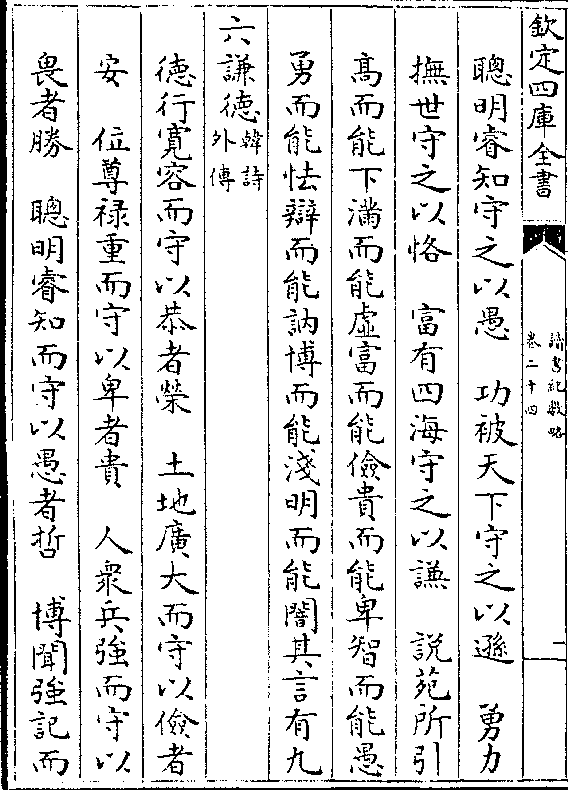 欽定四庫全書
讀書紀數略
卷二十四
二
聰明睿知守之以愚　功被天下守之以遜　勇力
撫世守之以恪　富有四海守之以謙　說苑所引
髙而能下滿而能虛富而能儉貴而能卑智而能愚
勇而能怯辯而能訥博而能淺明而能闇其言有九
六謙德韓詩外傳
德行寛容而守以恭者榮　土地廣大而守以儉者
安　位尊祿重而守以卑者貴　人衆兵強而守以
畏者勝　聰明睿知而守以愚者哲　博聞強記而